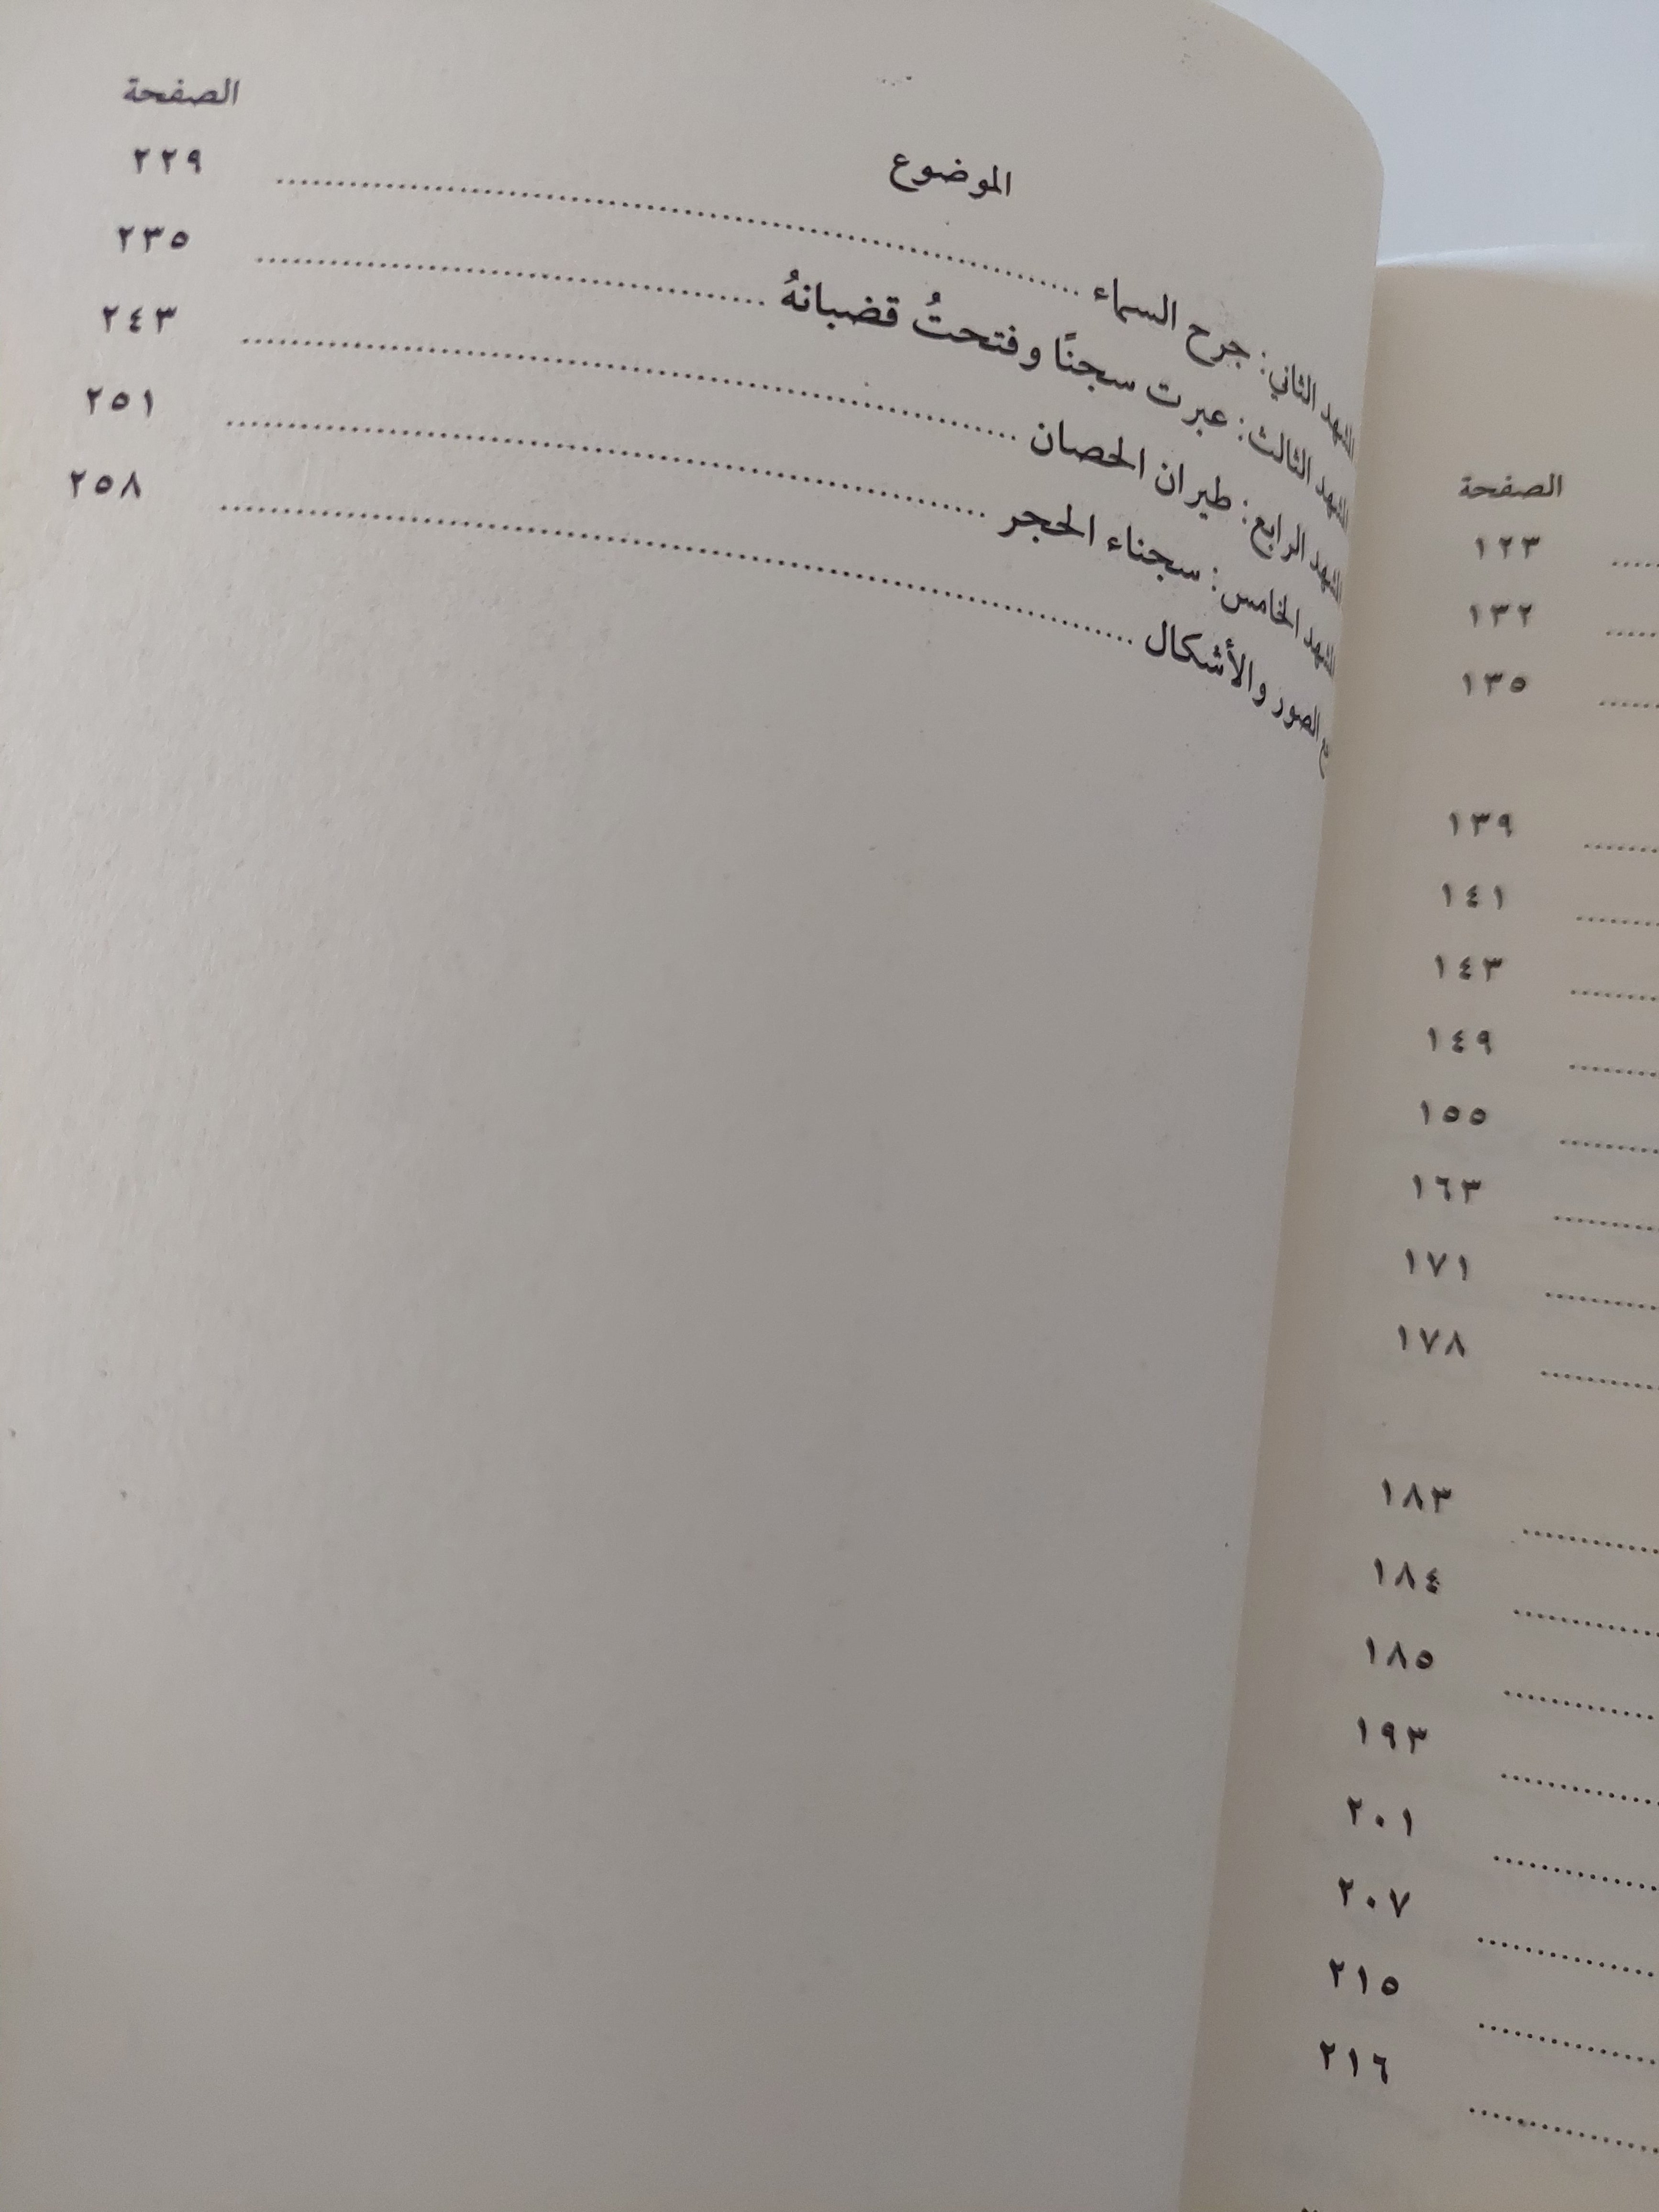 الموضوع الصفحة
المشهد الثاني: جرح السماء ........ ٢٢٩
المشهد الثالث: عبرت سجنًا وفتحتُ قضبانهُ ........ ٢٣٥
المشهد الرابع: طيران الحصان ........ ٢٤٣
المشهد الخامس: سجناء الحجر ........ ٢٥١
الصور والأشكال ........ ٢٥٨
الصفحة
........ ١٢٣
........ ١٣٢
........ ١٣٥
........ ١٣٩
........ ١٤١
........ ١٤٣
........ ١٤٩
........ ١٥٥
........ ١٦٣
........ ١٧١
........ ١٧٨
........ ١٨٣
........ ١٨٤
........ ١٨٥
........ ١٩٣
........ ٢٠١
........ ٢٠٧
........ ٢١٥
........ ٢١٦